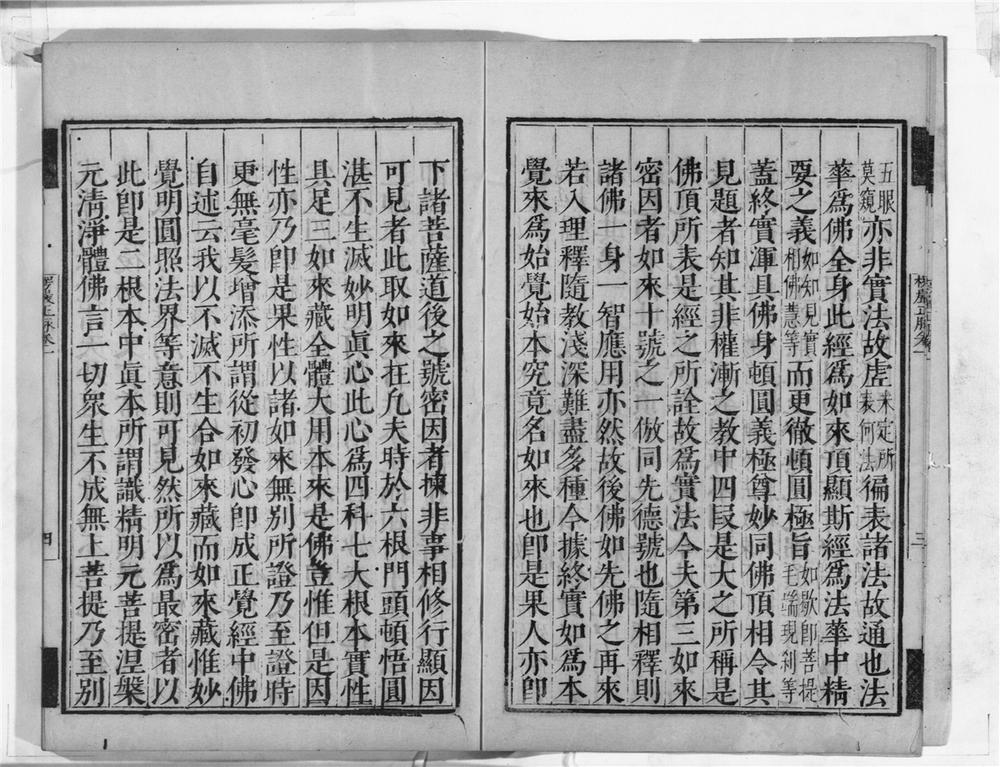 五眼莫窺亦非實法故虛未定所表何法徧表諸法故通也法
華爲佛全身此經爲如來頂顯斯經爲法華中精
要之義如知見實相佛慧等而更徹頓圓極旨如歇即菩提毛端現刹等
蓋終實渾具佛身頓圓義極尊妙同佛頂相令其
見題者知其非權漸之教中四叚是大之所稱是
佛頂所表是經之所詮故爲實法今夫第三如來
密因者如來十號之一倣同先德號也隨相釋則
諸佛一身一智應用亦然故後佛如先佛之再來
若入理釋隨教淺深難盡多種今據終實如爲本
覺來爲始覺始本究竟名如來也卽是果人亦卽
三
下諸菩薩道後之號密因者揀非事相修行顯因
可見者此取如來在凡夫時於六根門頭頓悟圓
湛不生滅妙明眞心此心爲四科七大根本實性
具足三如來藏全體大用本來是佛豈惟但是因
性亦乃卽是果性以諸如來無别所證乃至證時
更無毫髮增添所謂從初發心卽成正覺經中佛
自述云我以不滅不生合如來藏而如來藏惟妙
覺明圓照法界等意則可見然所以爲最密者以
此卽是二根本中眞本所謂識精明元菩提涅槃
元清淨體佛言一切衆生不成無上菩提乃至別
四